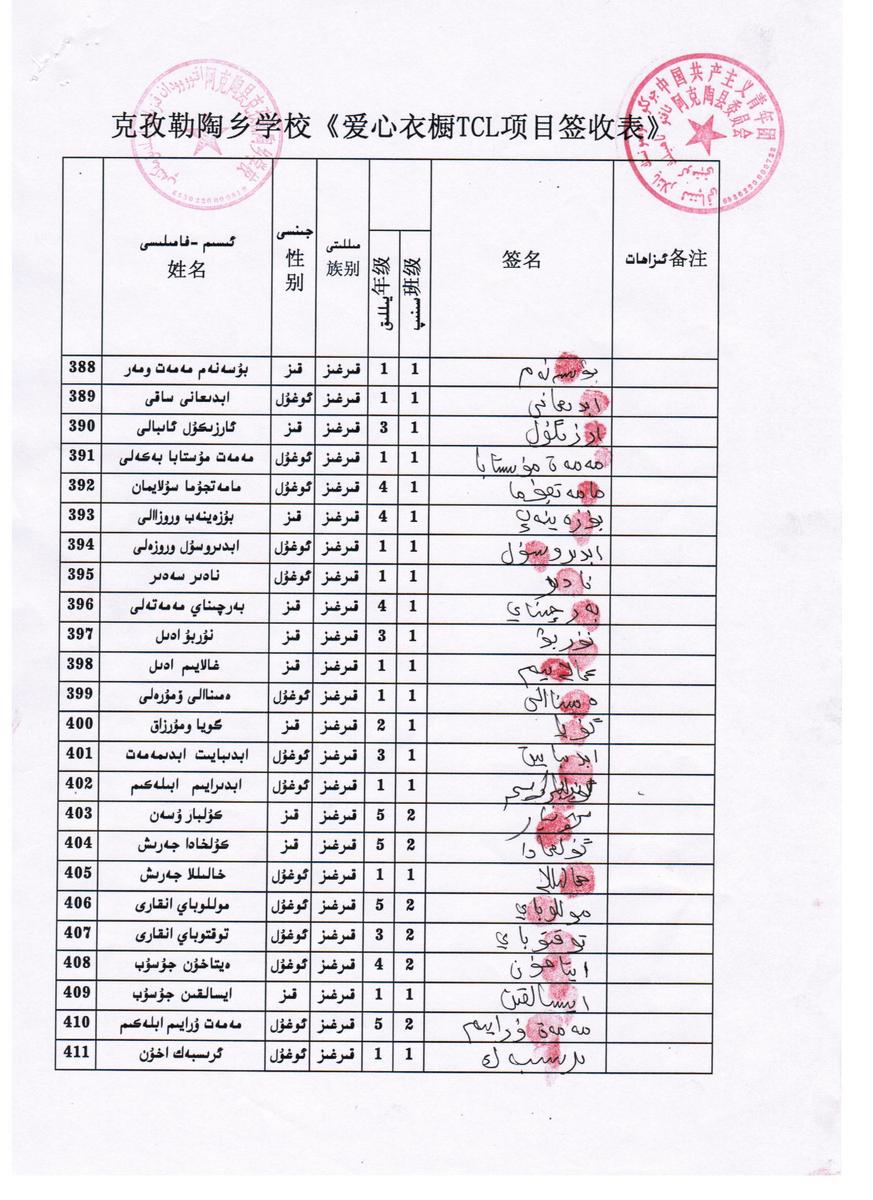 克孜勒陶乡学校《爱心衣橱TCL项目签收表》
中国共产主义青年团
阿克陶县委员会
ئىسىم -فامىلىسى جىنسى مىللىتى يىللىق سىنىپ ئىزاھات
姓名 性别 族别 年级 班级 签名 备注
388 بۇسەنەم مەمەت ومەر قىز قىرغىز 1 1 بۇسەنەم
389 ابدىعانى ساقى ئوغۇل قىرغىز 1 1 ابدىعانى
390 ئارزىكۇل ئابالى قىز قىرغىز 3 1
391 مەمەت مۇستابا بەكەلى ئوغۇل قىرغىز 1 1 مەمەت مۇستابا
392 مامەتجۇما سۇلايمان ئوغۇل قىرغىز 4 1
393 بۇزەينەب وروزالى قىز قىرغىز 4 1
394 ابدىروسۇل وروزەلى ئوغۇل قىرغىز 1 1 ابدىروسۇل
395 نادىر سەدىر ئوغۇل قىرغىز 1 1
396 بەرچىناي مەمەتەلى قىز قىرغىز 4 1 بەرچىناي
397 نۇربۇ ادىل قىز قىرغىز 3 1
398 عالايىم ادىل قىز قىرغىز 1 1
399 ەسىناالى ۋمۇرەلى ئوغۇل قىرغىز 1 1
400 گويا ومۇرزاق قىز قىرغىز 2 1
401 ابدىبايىت ابدىمەمەت ئوغۇل قىرغىز 3 1
402 ابدىرايىم ابىلەكىم ئوغۇل قىرغىز 1 1
403 كۇلبار ۇسەن قىز قىرغىز 5 2
404 كۇلخادا جەرىش قىز قىرغىز 5 2
405 خالىللا جەرىش ئوغۇل قىرغىز 1 1
406 موللوباي انقارى ئوغۇل قىرغىز 5 2 موللوباي
407 توقتوباي انقارى ئوغۇل قىرغىز 3 2 توقتوباي
408 ەيتاخۇن جۇسۇب ئوغۇل قىرغىز 4 2
409 ايسالقىن جۇسۇب قىز قىرغىز 1 1 ايسالقىن
410 مەمەت ۇرايىم ابىلەكىم ئوغۇل قىرغىز 5 2 مەمەت ۇرايىم
411 ئرىسبەك اخۇن ئوغۇل قىرغىز 1 1